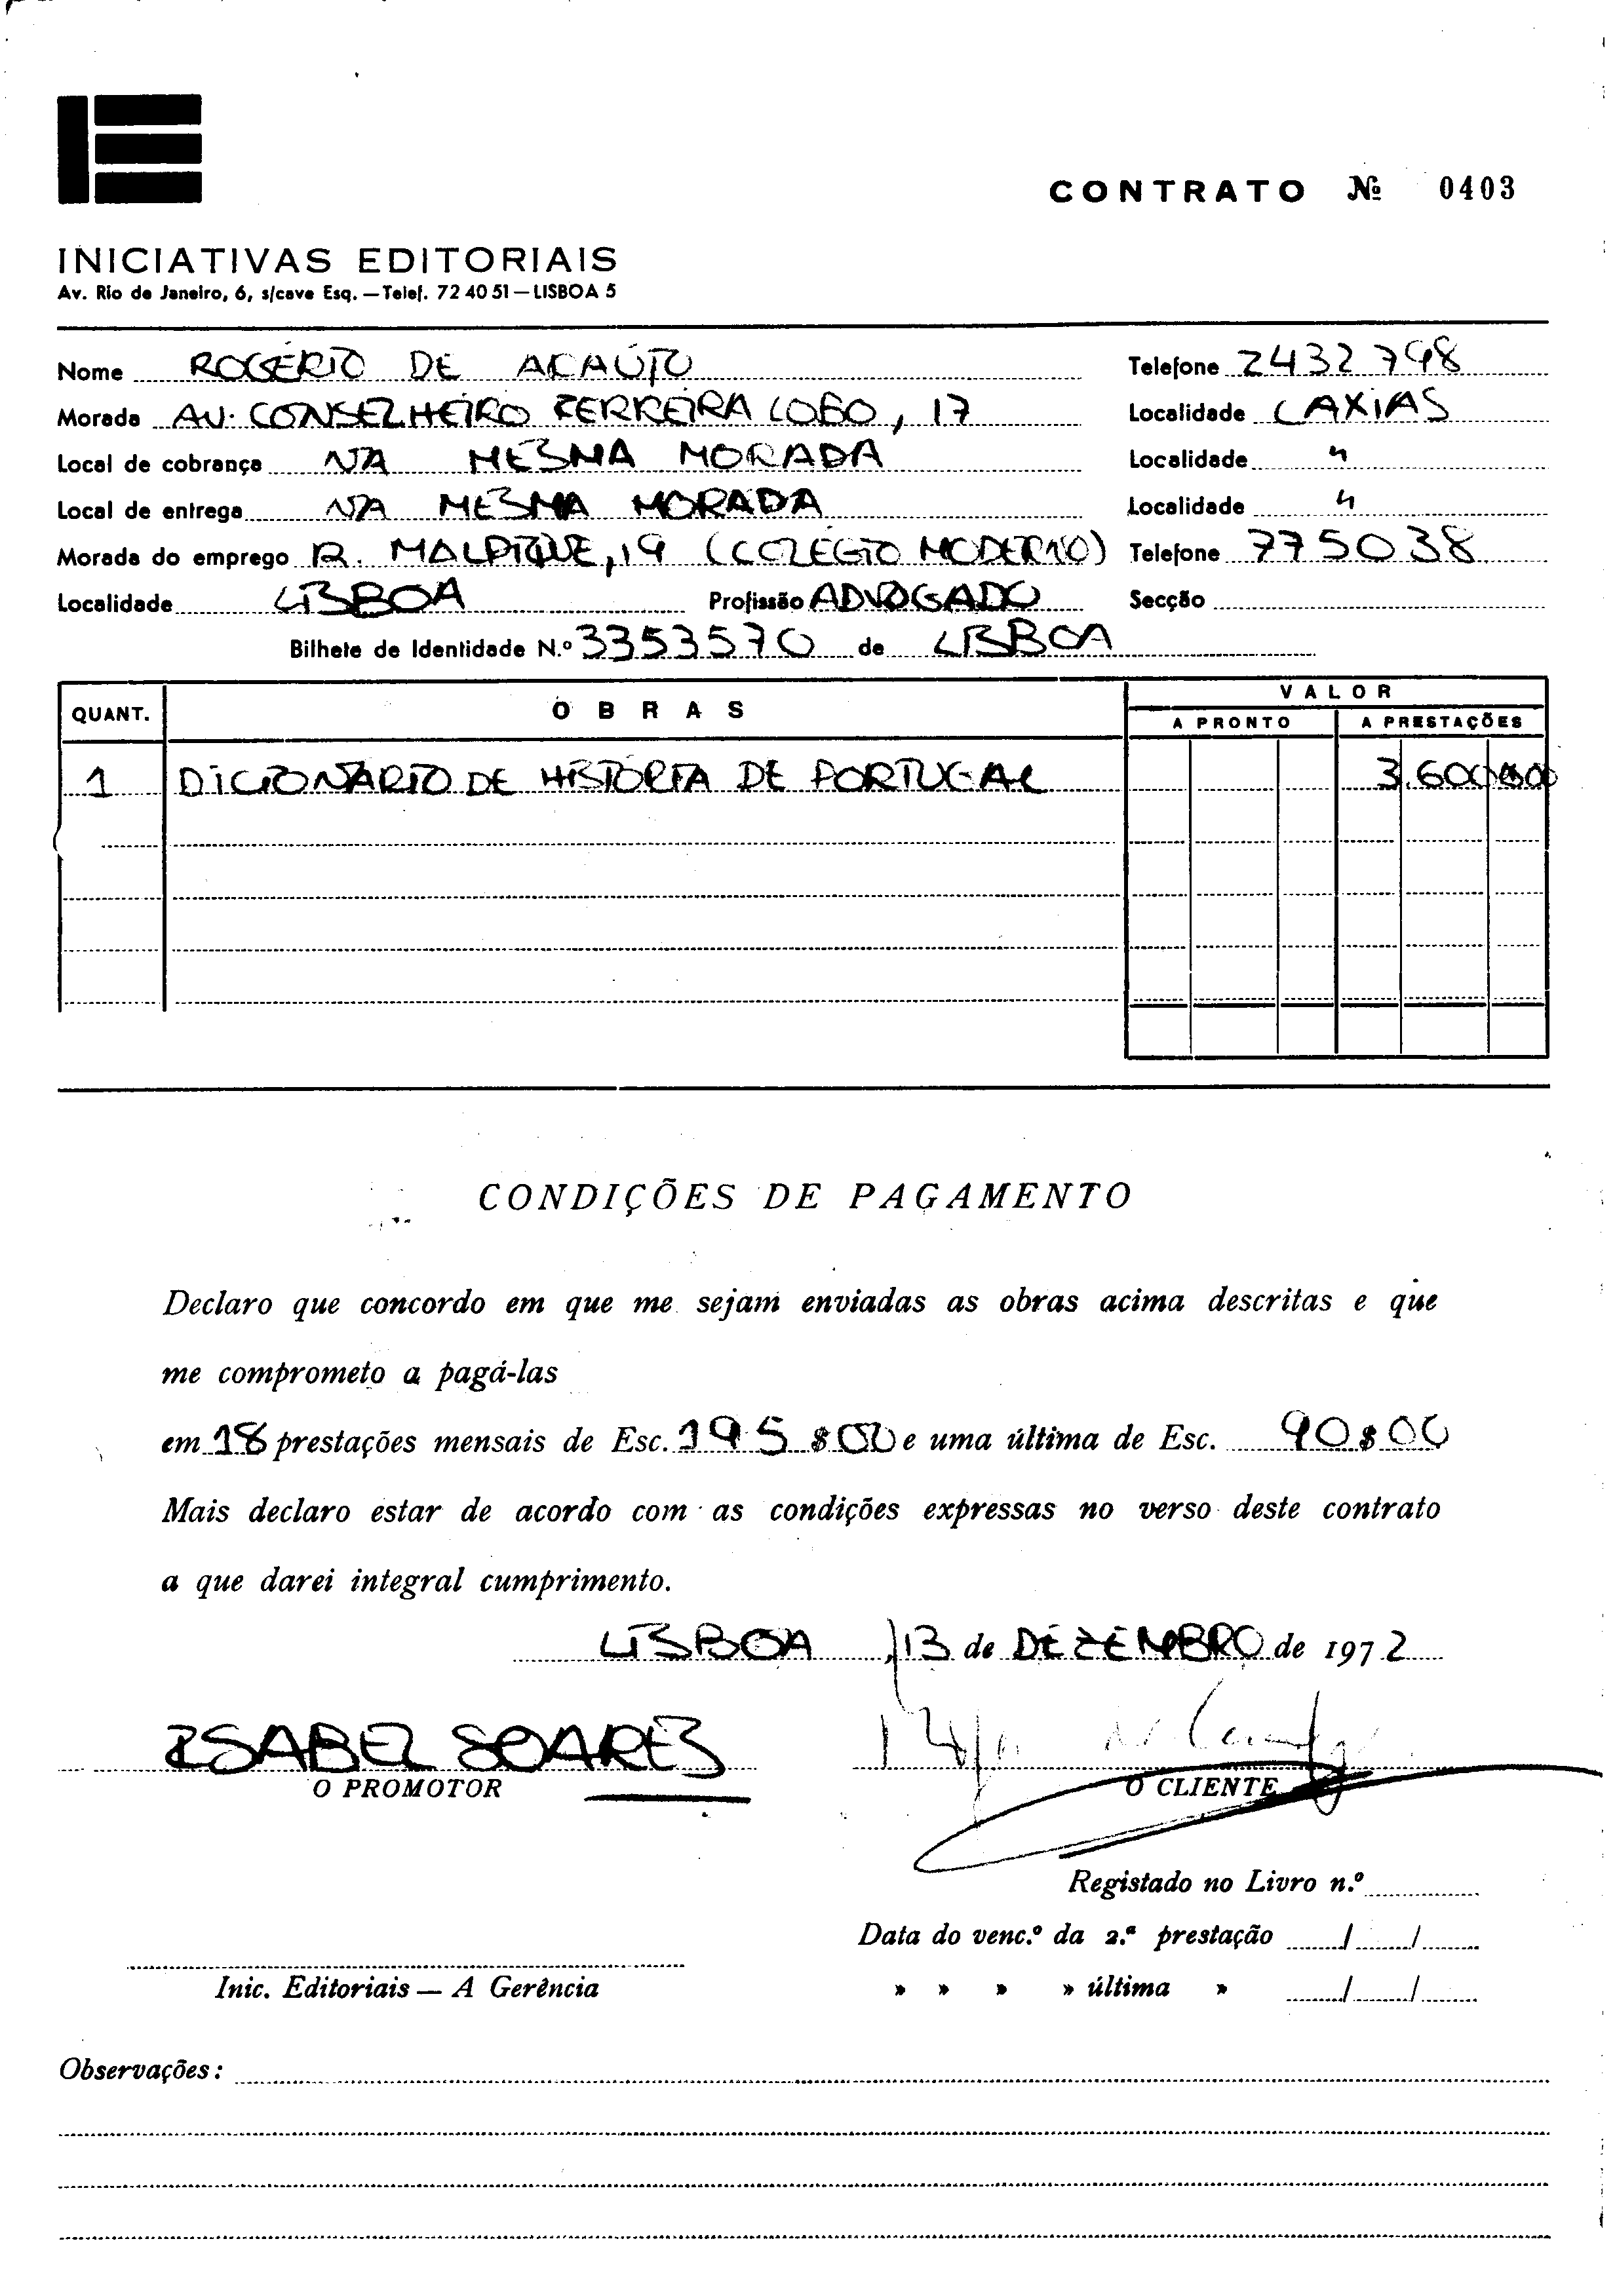 CONTRATO № 0403
INICIATIVAS EDITORIAIS
Av. Rio de Janeiro, 6, s/cave Esq. — Telef. 72 40 51 — LISBOA 5
Nome ROGÉRIO DE ARAÚJO Telefone 2432798
Morada AV. CONSELHEIRO FERREIRA LOBO, 17 Localidade CAXIAS
Local de cobrança NA MESMA MORADA Localidade "
Local de entrega NA MESMA MORADA Localidade "
Morada do emprego R. MALPIQUE, 19 (COLEGIO MODERNO) Telefone 775038
Localidade LISBOA Profissão ADVOGADO Secção
Bilhete de Identidade N.º 3353570 de LISBOA
QUANT. OBRAS VALOR
A PRONTO A PRESTAÇÕES
1 DICIONÁRIO DE HISTÓRIA DE PORTUGAL 3.600$00
CONDIÇÕES DE PAGAMENTO
Declaro que concordo em que me sejam enviadas as obras acima descritas e que
me comprometo a pagá-las
em 18 prestações mensais de Esc. 195$00 e uma última de Esc. 90$00
Mais declaro estar de acordo com as condições expressas no verso deste contrato
a que darei integral cumprimento.
LISBOA, 13 de DEZEMBRO de 1972
ISABEL SOARES
O PROMOTOR O CLIENTE
Registado no Livro n.º
Data do venc.º da 2.ª prestação / /
Inic. Editoriais — A Gerência » » » » última » / /
Observações: